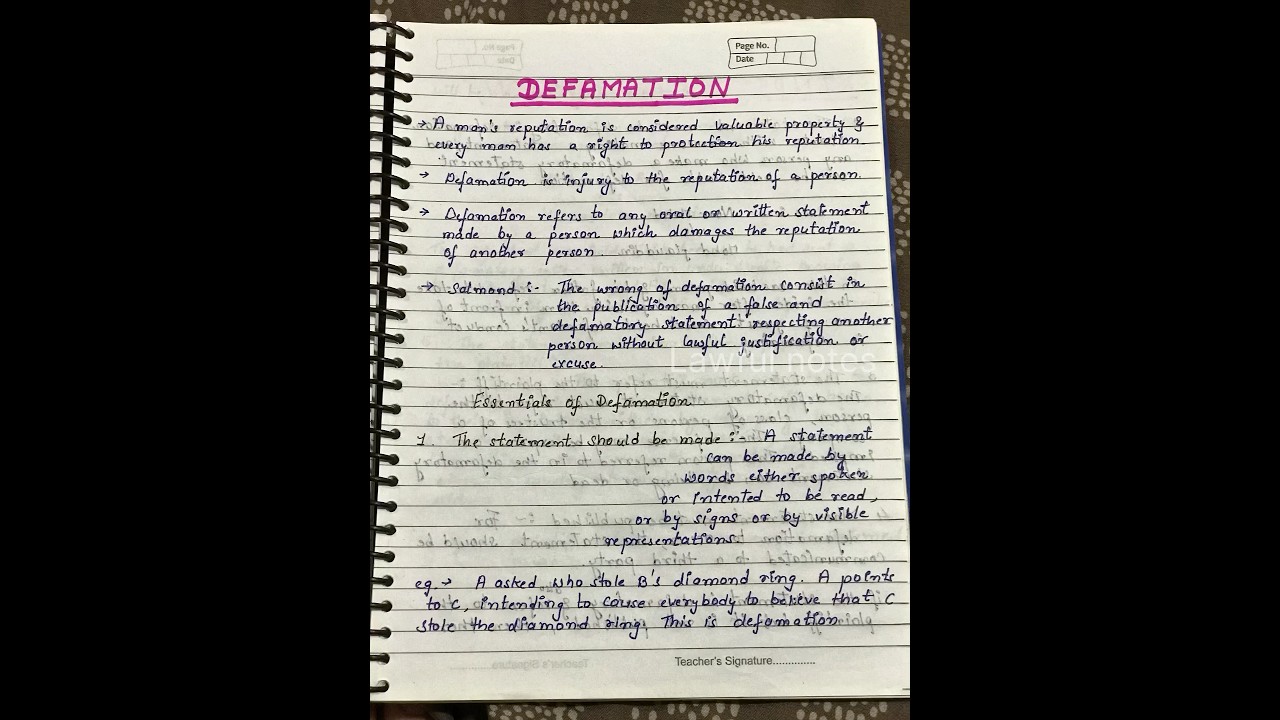 Page No.
Date
DEFAMATION
→ A man's reputation is considered valuable property &
every man has a right to protection his reputation.
→ Defamation is injury to the reputation of a person.
→ Defamation refers to any oral or written statement
made by a person which damages the reputation
of another person.
→ Salmond :- The wrong of defamation consist in
the publication of a false and
defamatory statement respecting another
person without lawful justification or
excuse.
Lawful notes
Essentials of Defamation
1 The statement should be made :- A statement
can be made by
words either spoken
or intented to be read,
or by signs or by visible
representations
eg. → A asked who stole B's diamond ring. A points
to C, intending to cause everybody to believe that C
stole the diamond ring. This is defamation
Teacher's Signature..............